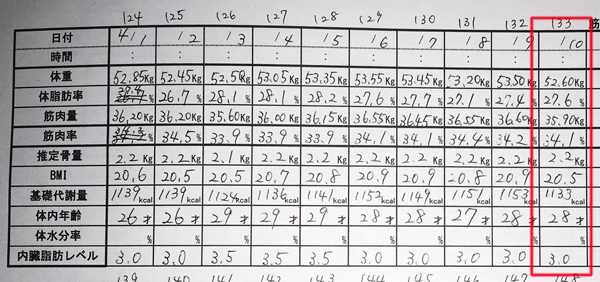 124 125 126 127 128 129 130 131 132 133
日付 4/1 /2 /3 /4 /5 /6 /7 /8 /9 /10
時間 : : : : : : : : : :
体重 52.85Kg 52.45Kg 52.5Kg 53.05Kg 53.35Kg 53.55Kg 53.45Kg 53.20Kg 53.50Kg 52.60Kg
体脂肪率 % 26.7% 28.1% 28.1% 28.2% 27.6% 27.7% 27.1% 27.4% 27.6%
筋肉量 36.20Kg 36.20Kg 35.60Kg 36.00Kg 36.15Kg 36.55Kg 36.45Kg 36.55Kg 36.60Kg 35.90Kg
筋肉率 % 34.5% 33.9% 33.9% 33.9% 34.1% 34.1% 34.4% 34.2% 34.1%
推定骨量 2.2Kg 2.2Kg 2.1Kg 2.2Kg 2.2Kg 2.2Kg 2.2Kg 2.2Kg 2.2Kg 2.2Kg
BMI 20.6 20.5 20.5 20.7 20.8 20.9 20.9 20.8 20.9 20.5
基礎代謝量 1139kcal 1139kcal 1124kcal 1136kcal 1141kcal 1152kcal 1149kcal 1151kcal 1153kcal 1133kcal
体内年齢 26才 26才 29才 29才 29才 28才 28才 27才 28才 28才
体水分率 % % % % % % % % % %
内臓脂肪レベル 3.0 3.0 3.5 3.5 3.5 3.0 3.0 3.0 3.0 3.0
139 140 141 142 144 145 146 147 148